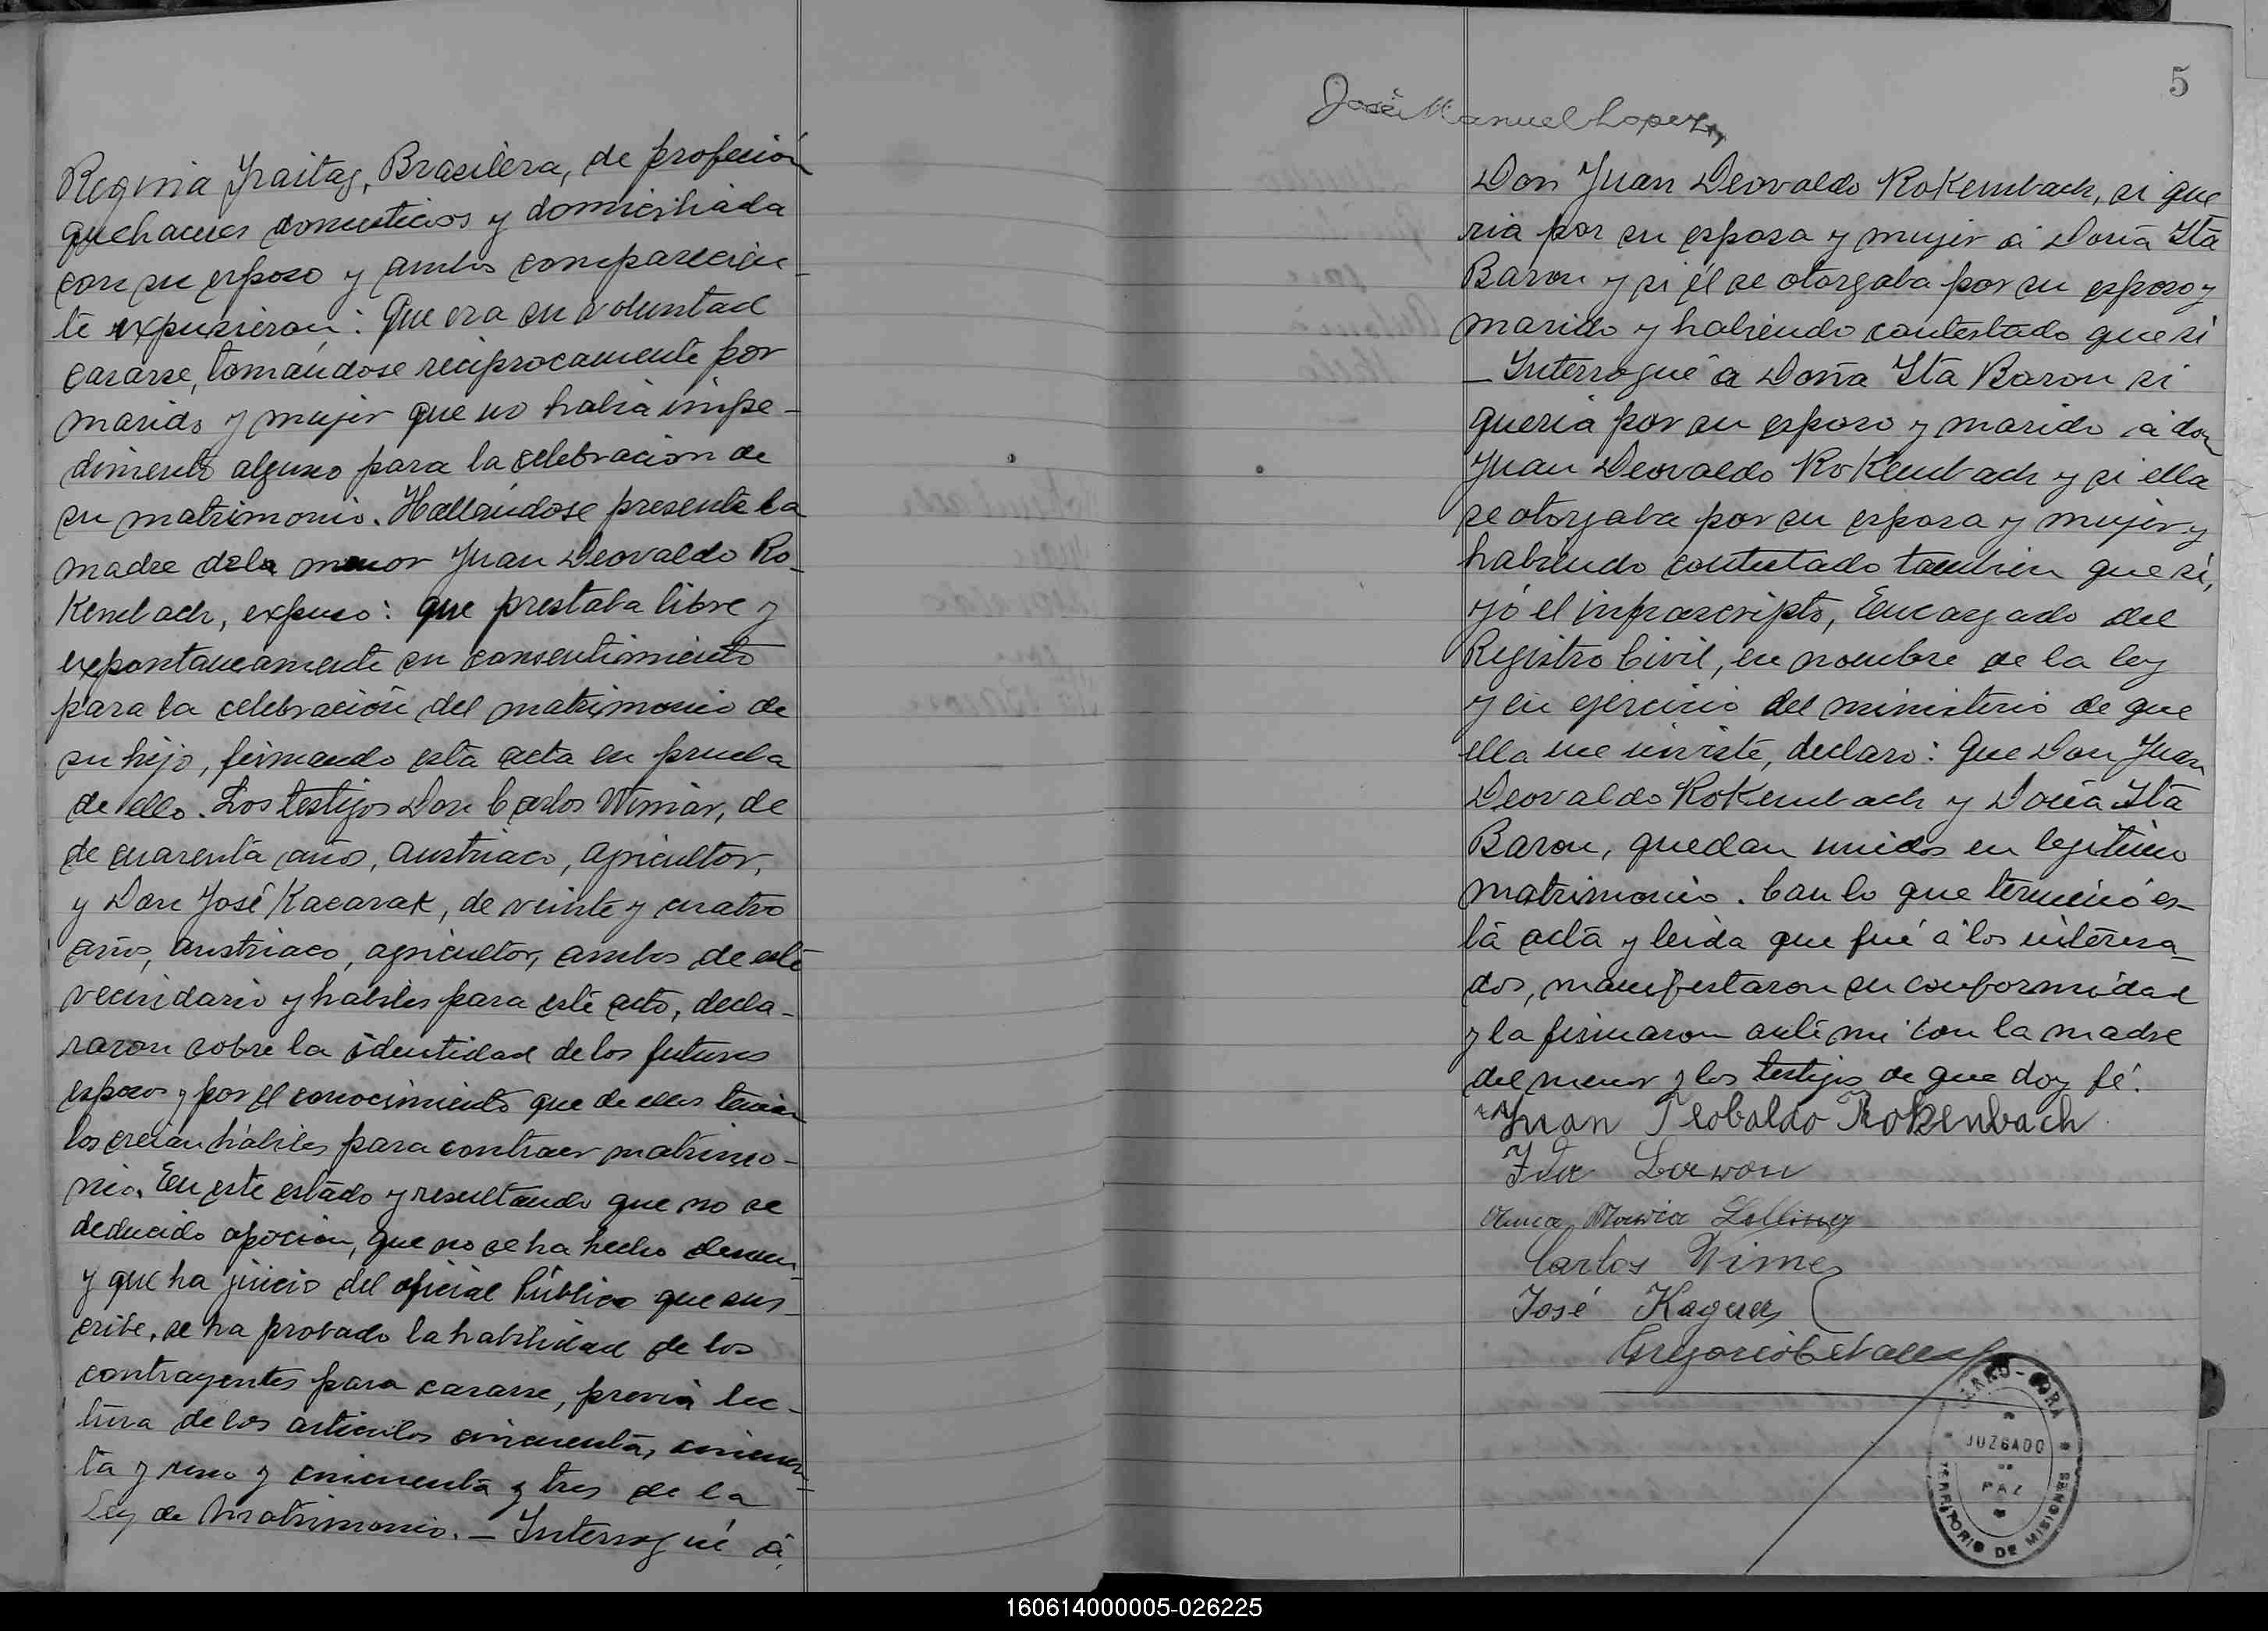 Regina Fraitag, Brasilera, de profeción
quehaceres domesticos y domiciliada
con su esposo y ambos comparecien-
te expusieron: Que era su voluntad
casarse, tomándose reciprocamente por
marido y mujer que no habia impe-
dimento alguno para la celebracion de
su matrimonio. Hallandose presente la
madre dela menor Juan Deovaldo Ro-
Kembach, expuso: que prestaba libre y
expontaneamente su consentimiento
para la celebración del matrimonio de
su hijo, firmando esta acta en prueba
de ello. Los testigos Don Carlos Wimar, de
de cuarenta años, austriaco, agricultor,
y Don José Kacarak, de veinte y cuatro
años, austriaco, agricultor, ambos de este
vecindario y habiles para este acto, decla-
raron sobre la identidad de los futuros
esposos y por el conocimiento que de ellos tenian
los creian hábiles para contraer matrimo-
nio. En este estado y resultando que no se
deducido oposcion, que no se ha hecho denun-
y que ha juicio del oficial Público que sus-
cribe, se ha probado la habilidad de los
contrayentes para casarse, previa lec-
tura de los articulos cincuenta, cincuen-
ta y uno y cincuenta y tres de la
Ley de Matrimonio. - Interrogué á
5
José Manuel Lopez
Don Juan Deovaldo RoKembach, si que
ria por su esposa y mujer á Doña Ita
Baron y si él se otorgaba por su esposo y
marido y habiendo contestado que si
- Interrogué a Doña Ita Baron si
queria por su esposo y marido a don
Juan Deovaldo RoKembach y si ella
se otorgaba por su esposa y mujer y
habiendo contestado tambien que si,
yó el infrascripto, Encargado del
Registro Civil, en nombre de la ley
y en ejercicio del ministerio de que
ella me inviste, declaro: Que Don Juan
Deovaldo RoKembach y Doña Ita
Baron, quedan unidos en legitimo
matrimonio. Con lo que terminó es-
ta acta y leida que fué a los interesa-
dos, manifestaron su conformidad
y la firmaron ante mi con la madre
del menor y los testigos de que doy fé.
Juan Teobaldo Rokenbach
Ida Baron
Carlos Wimer
José
Gregorio
CERRO-CORÁ
JUZGADO
DE
PAZ
TERRITORIO DE MISIONES
160614000005-026225